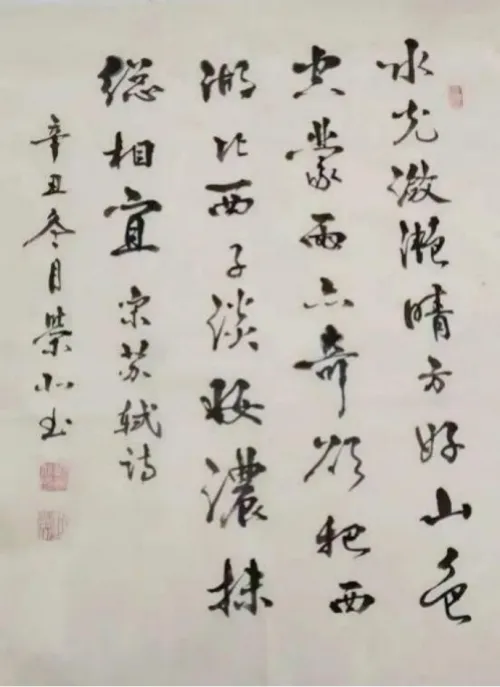 水光潋滟晴方好山色
空蒙雨亦奇欲把西
湖比西子淡妝濃抹
總相宜 宋苏軾诗
辛丑冬月榮书